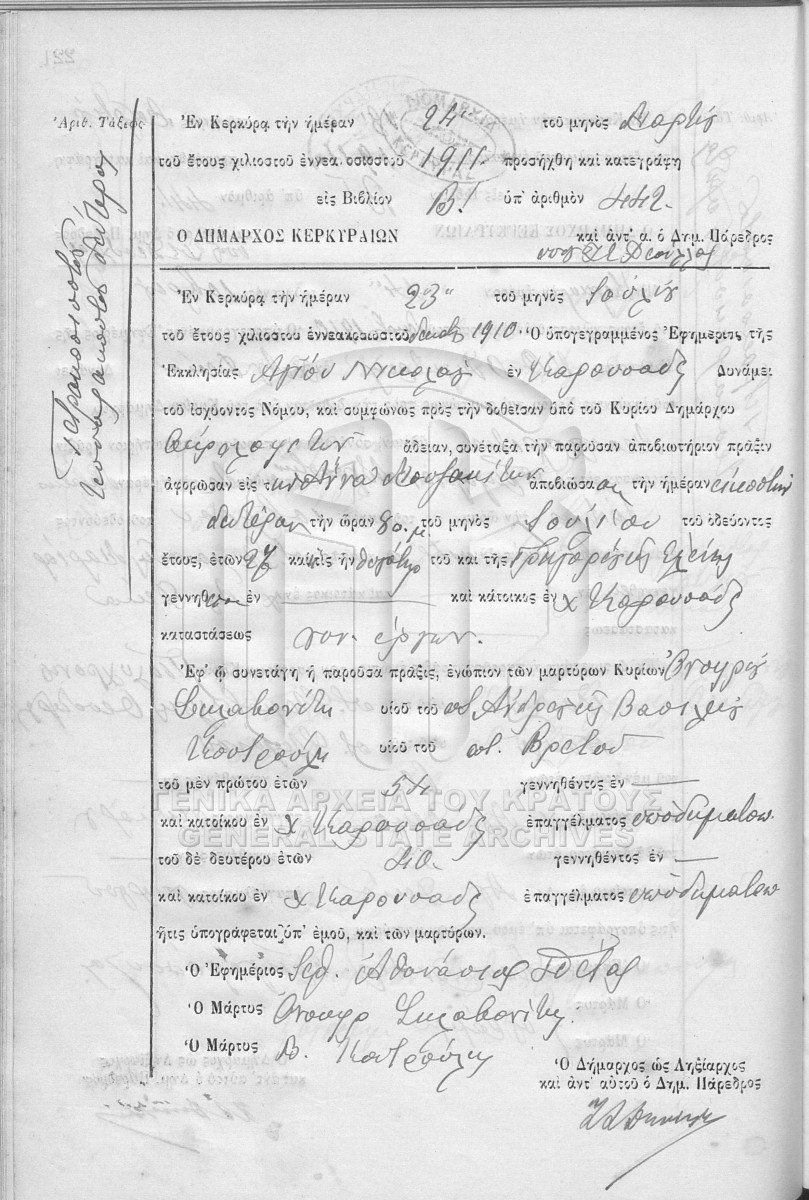 Ἀριθ. Τάξεως
Τετρακοσιοστὸν
τεσσαρακοστὸν δεύτερον
Ἐν Κερκύρᾳ τὴν ἡμέραν 24 τοῦ μηνὸς Μαρτίου
τοῦ ἔτους χιλιοστοῦ ἐννεα οσιοστοῦ 1911 προσήχθη καὶ κατεγράφη
εἰς Βιβλίον Β. ὑπ' ἀριθμὸν 442.
Ο ΔΗΜΑΡΧΟΣ ΚΕΡΚΥΡΑΙΩΝ καὶ ἀντ' α. ὁ Δημ. Πάρεδρος
Ἐν Κερκύρᾳ τὴν ἡμέραν 23 τοῦ μηνὸς Ἰουλίου
τοῦ ἔτους χιλιοστοῦ ἐννεακοσιοστοῦ 1910 Ὁ ὑπογεγραμμένος Ἐφημέριος τῆς
Ἐκκλησίας Ἁγίου Νικολάου ἐν Καρουσάδες Δυνάμει
τοῦ ἰσχύοντος Νόμου, καὶ συμφώνως πρὸς τὴν δοθεῖσαν ὑπὸ τοῦ Κυρίου Δημάρχου
ἄδειαν, συνέταξα τὴν παροῦσαν ἀποβιωτήριον πρᾶξιν
ἀφορῶσαν εἰς τὴν Ἄννα Μουζακίτη ἀποβιώσασα τὴν ἡμέραν εἰκοστὴν
δευτέραν τὴν ὥραν 8 π.μ. τοῦ μηνὸς Ἰουλίου τοῦ ὁδεύοντος
ἔτους, ἐτῶν 27 καὶ τις ἦν θυγάτηρ τοῦ καὶ τῆς Γρηγορίου Ἑλένης
γεννηθεῖσα ἐν — καὶ κάτοικος ἐν χ Καρουσάδες
καταστάσεως γυν. ἔργων.
Ἐφ' ᾧ συνετάγη ἡ παροῦσα πρᾶξις, ἐνώπιον τῶν μαρτύρων Κυρίων Ὀνουφρίου
Σκλαβουνίτη υἱοῦ τοῦ ποτ. Ἀνδρέου καὶ Βασιλείου
Κουτρούλη υἱοῦ τοῦ ποτ. Βρετοῦ
τοῦ μὲν πρώτου ἐτῶν 54 γεννηθέντος ἐν —
καὶ κατοίκου ἐν χ Καρουσάδες ἐπαγγέλματος ὑποδηματοπ.
τοῦ δὲ δευτέρου ἐτῶν 40. γεννηθέντος ἐν —
καὶ κατοίκου ἐν χ Καρουσάδες ἐπαγγέλματος ὑποδηματοπ
ἥτις ὑπογράφεται ὑπ' ἐμοῦ, καὶ τῶν μαρτύρων.
Ὁ Ἐφημέριος Ἱερ. Ἀθανάσιος
Ὁ Μάρτυς Ὀνουφρ Σκλαβουνίτης
Ὁ Μάρτυς Β. Κουτρούλης
Ὁ Δήμαρχος ὡς Ληξίαρχος
καὶ ἀντ' αὐτοῦ ὁ Δημ. Πάρεδρος
ΓΕΝΙΚΑ ΑΡΧΕΙΑ ΤΟΥ ΚΡΑΤΟΥΣ
GENERAL STATE ARCHIVES